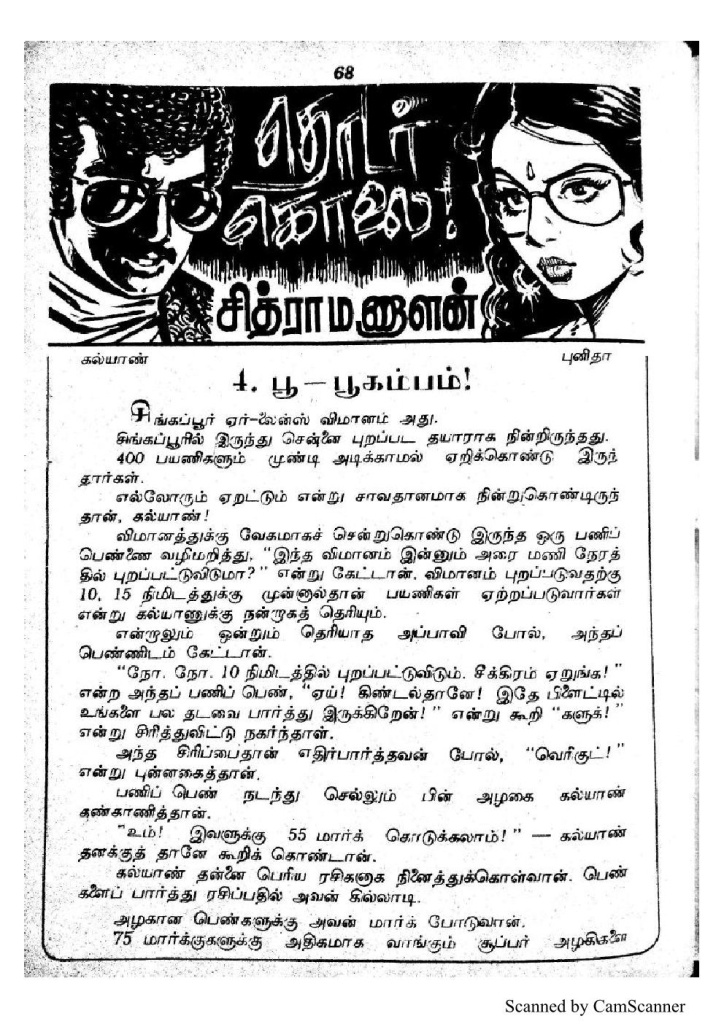 68
தொடர்
கொலை!
சித்ராமணாளன்
கல்யாண்
புனிதா
4. பூ — பூகம்பம்!
சிங்கப்பூர் ஏர்-லைன்ஸ் விமானம் அது.
சிங்கப்பூரில் இருந்து சென்னை புறப்பட தயாராக நின்றிருந்தது.
400 பயணிகளும் முண்டி அடிக்காமல் ஏறிக்கொண்டு இருந்
தார்கள்.
எல்லோரும் ஏறட்டும் என்று சாவதானமாக நின்றுகொண்டிருந்
தான், கல்யாண்!
விமானத்துக்கு வேகமாகச் சென்றுகொண்டு இருந்த ஒரு பணிப்
பெண்ணை வழிமறித்து, “இந்த விமானம் இன்னும் அரை மணி நேரத்
தில் புறப்பட்டுவிடுமா?” என்று கேட்டான். விமானம் புறப்படுவதற்கு
10, 15 நிமிடத்துக்கு முன்னால்தான் பயணிகள் ஏற்றப்படுவார்கள்
என்று கல்யாணுக்கு நன்றாகத் தெரியும்.
என்றாலும் ஒன்றும் தெரியாத அப்பாவி போல், அந்தப்
பெண்ணிடம் கேட்டான்.
“நோ. நோ. 10 நிமிடத்தில் புறப்பட்டுவிடும். சீக்கிரம் ஏறுங்க!”
என்ற அந்தப் பணிப் பெண், “ஏய்! கிண்டல்தானே! இதே பிளைட்டில்
உங்களை பல தடவை பார்த்து இருக்கிறேன்!” என்று கூறி “களுக்!”
என்று சிரித்துவிட்டு நகர்ந்தாள்.
அந்த சிரிப்பைதான் எதிர்பார்த்தவன் போல், “வெரிகுட்!”
என்று புன்னகைத்தான்.
பணிப் பெண் நடந்து செல்லும் பின் அழகை கல்யாண்
கண்காணித்தான்.
“உம்! இவளுக்கு 55 மார்க் கொடுக்கலாம்!” — கல்யாண்
தனக்குத் தானே கூறிக் கொண்டான்.
கல்யாண் தன்னை பெரிய ரசிகனாக நினைத்துக்கொள்வான். பெண்
களைப் பார்த்து ரசிப்பதில் அவன் கில்லாடி.
அழகான பெண்களுக்கு அவன் மார்க் போடுவான்.
75 மார்க்குகளுக்கு அதிகமாக வாங்கும் சூப்பர் அழகிகளை
Scanned by CamScanner